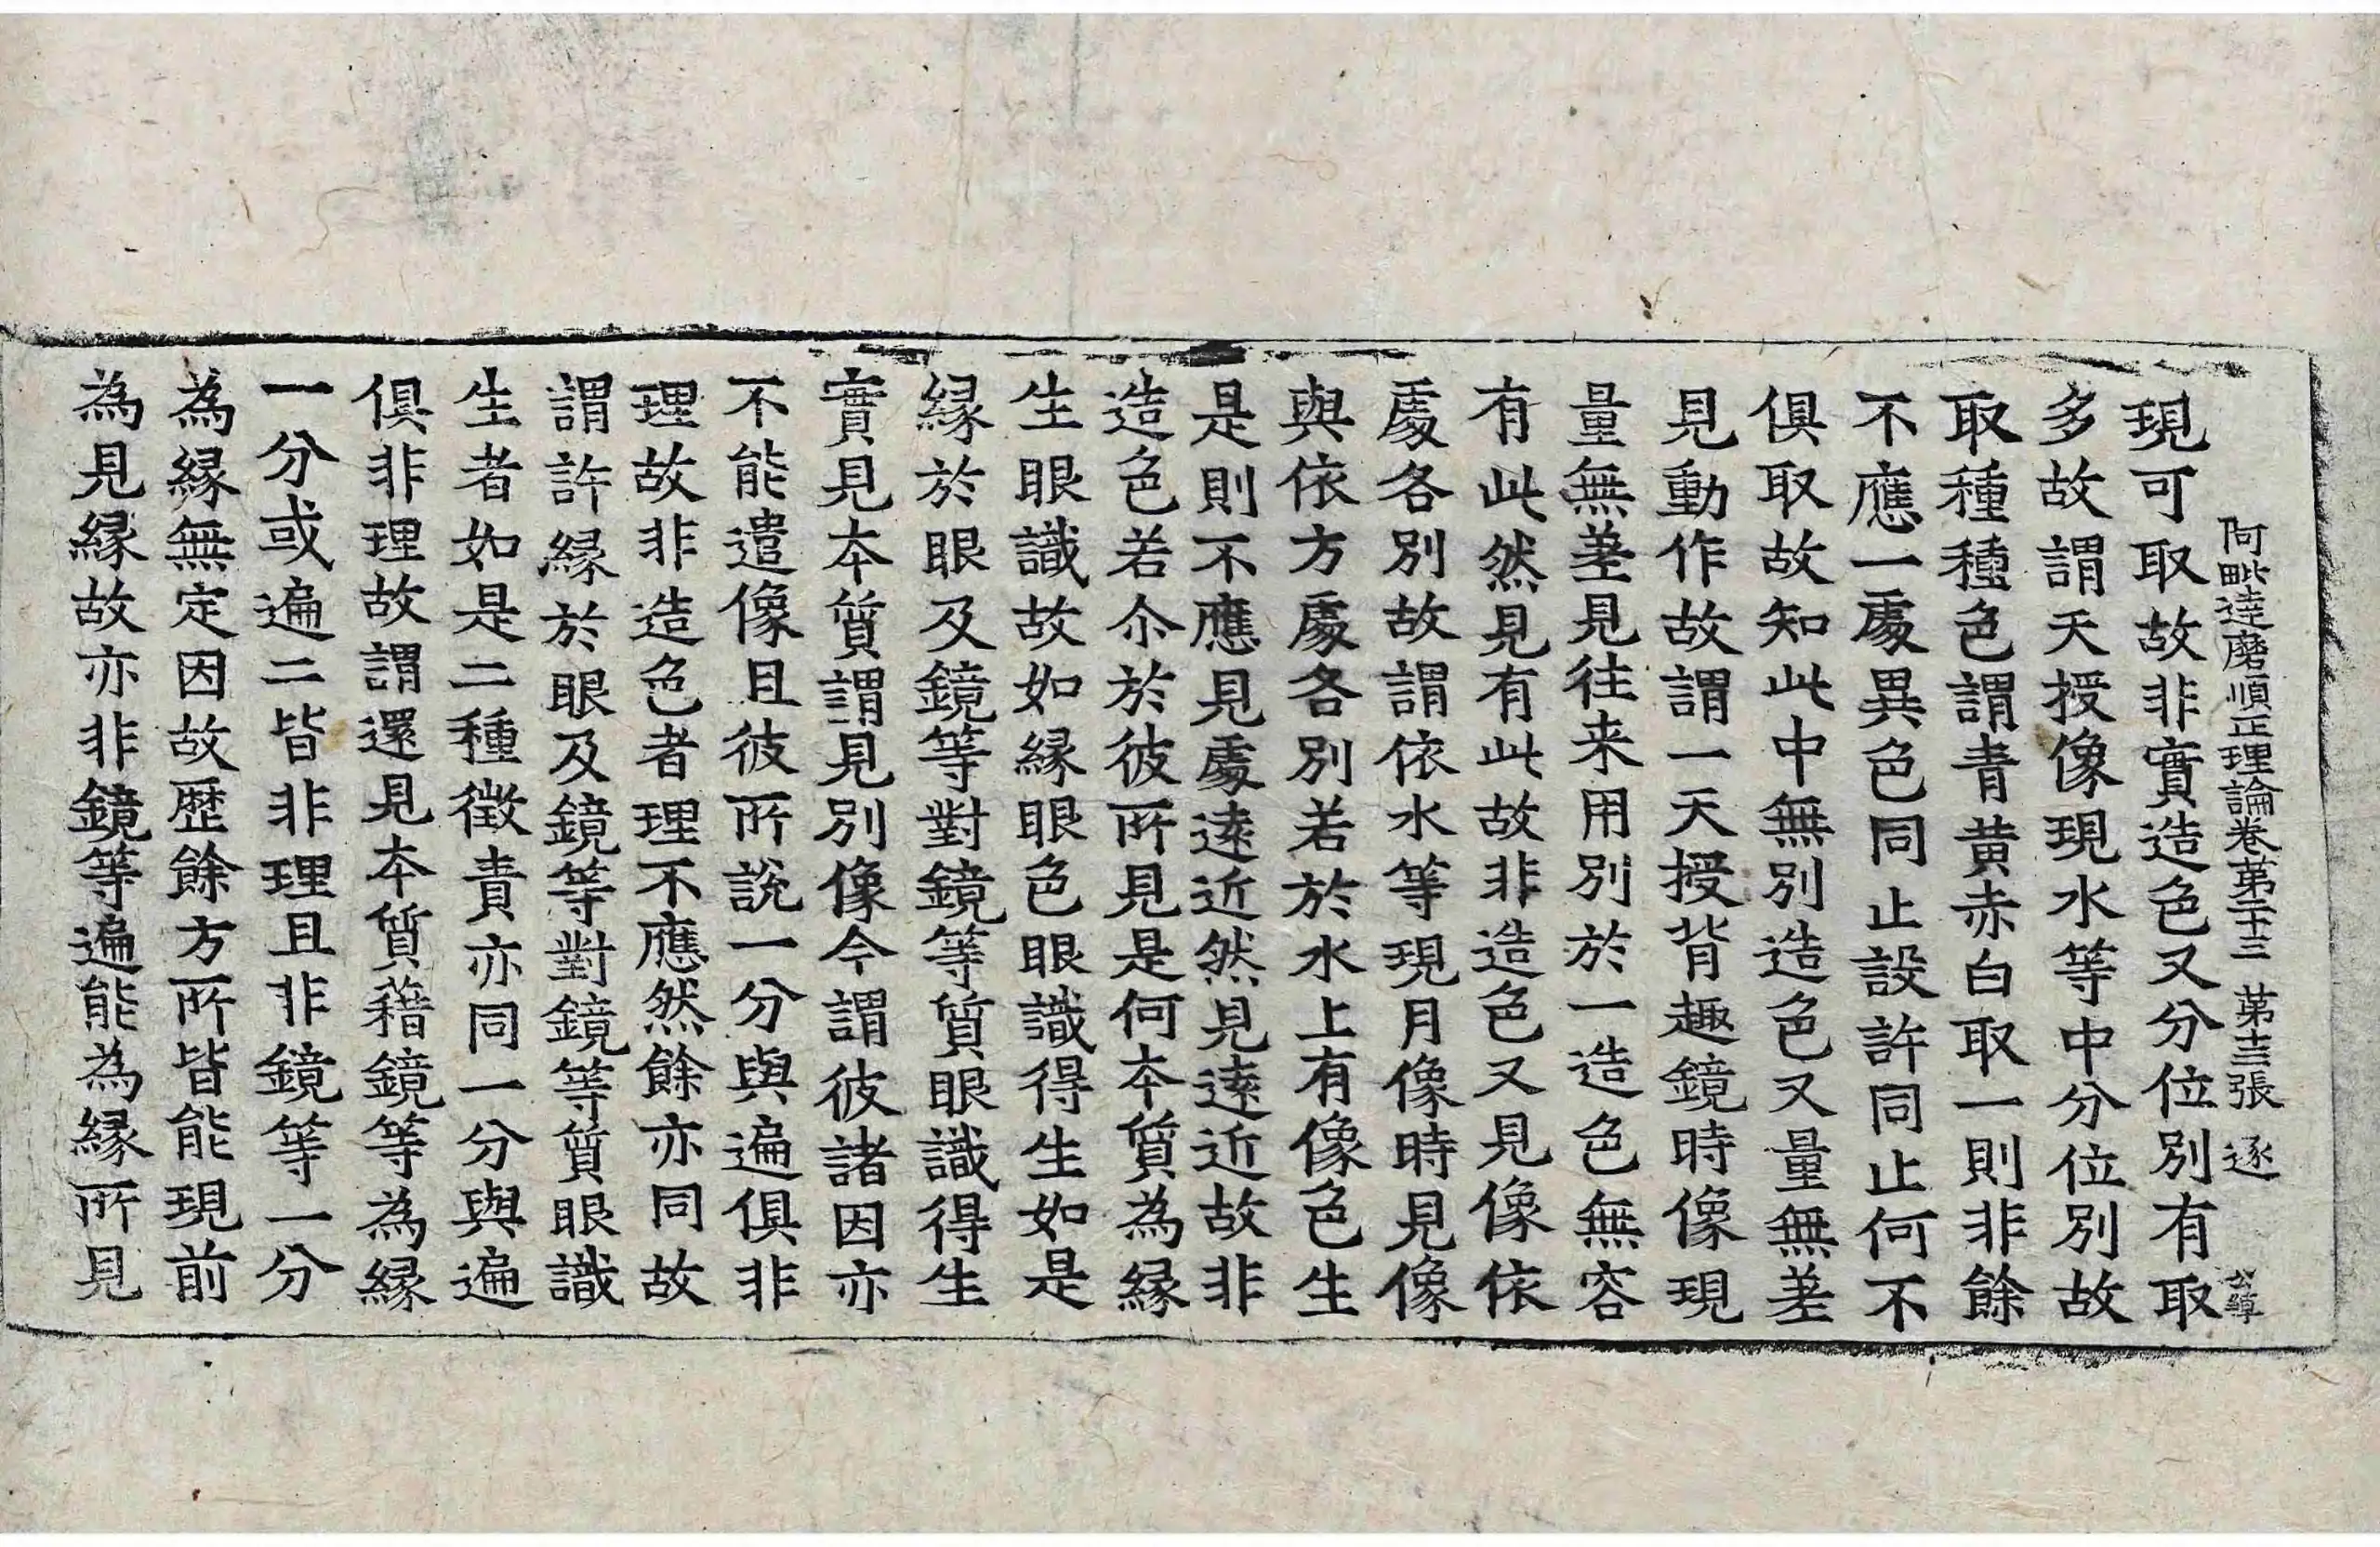 阿毗達磨順正理論卷第二十三 第十三張 逐
現可取故非實造色又分位別有取
多故謂天授像現水等中分位別故
取種種色謂青黃赤白取一則非餘
不應一處異色同止設許同止何不
俱取故知此中無別造色又量無差
見動作故謂一天授背趣鏡時像現
量無差見往来用別於一造色無容
有此然見有此故非造色又見像依
處各別故謂依水等現月像時見像
與依方處各別若於水上有像色生
是則不應見處遠近然見遠近故非
造色若尒於彼所見是何本質為緣
生眼識故如緣眼色眼識得生如是
緣於眼及鏡等對鏡等質眼識得生
實見本質謂見別像今謂彼諸因亦
不能遣像且彼所說一分與遍俱非
理故非造色者理不應然餘亦同故
謂許緣於眼及鏡等對鏡等質眼識
生者如是二種徵責亦同一分與遍
俱非理故謂還見本質藉鏡等為緣
一分或遍二皆非理且非鏡等一分
為緣無定因故歷餘方所皆能現前
為見緣故亦非鏡等遍能為緣所見